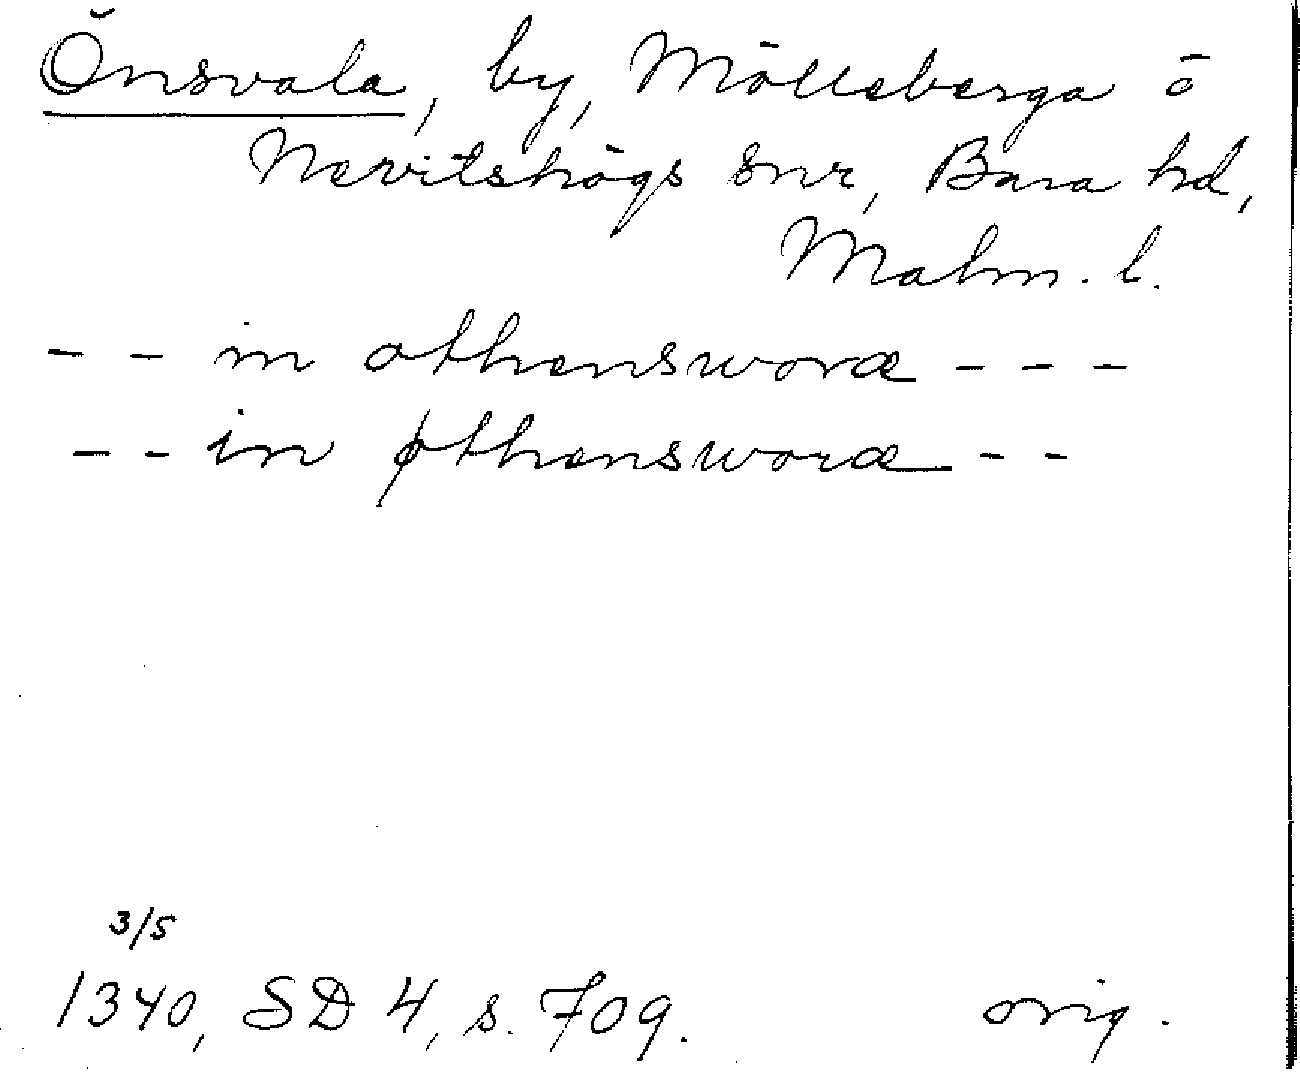 Önsvala, by, Mölleberga o
Nevitshögs snr, Bara hd,
Malm. l.
- - in othensworæ - - -
- - in øthensworæ - -
3/5
1340, SD 4, s. 709. orig.